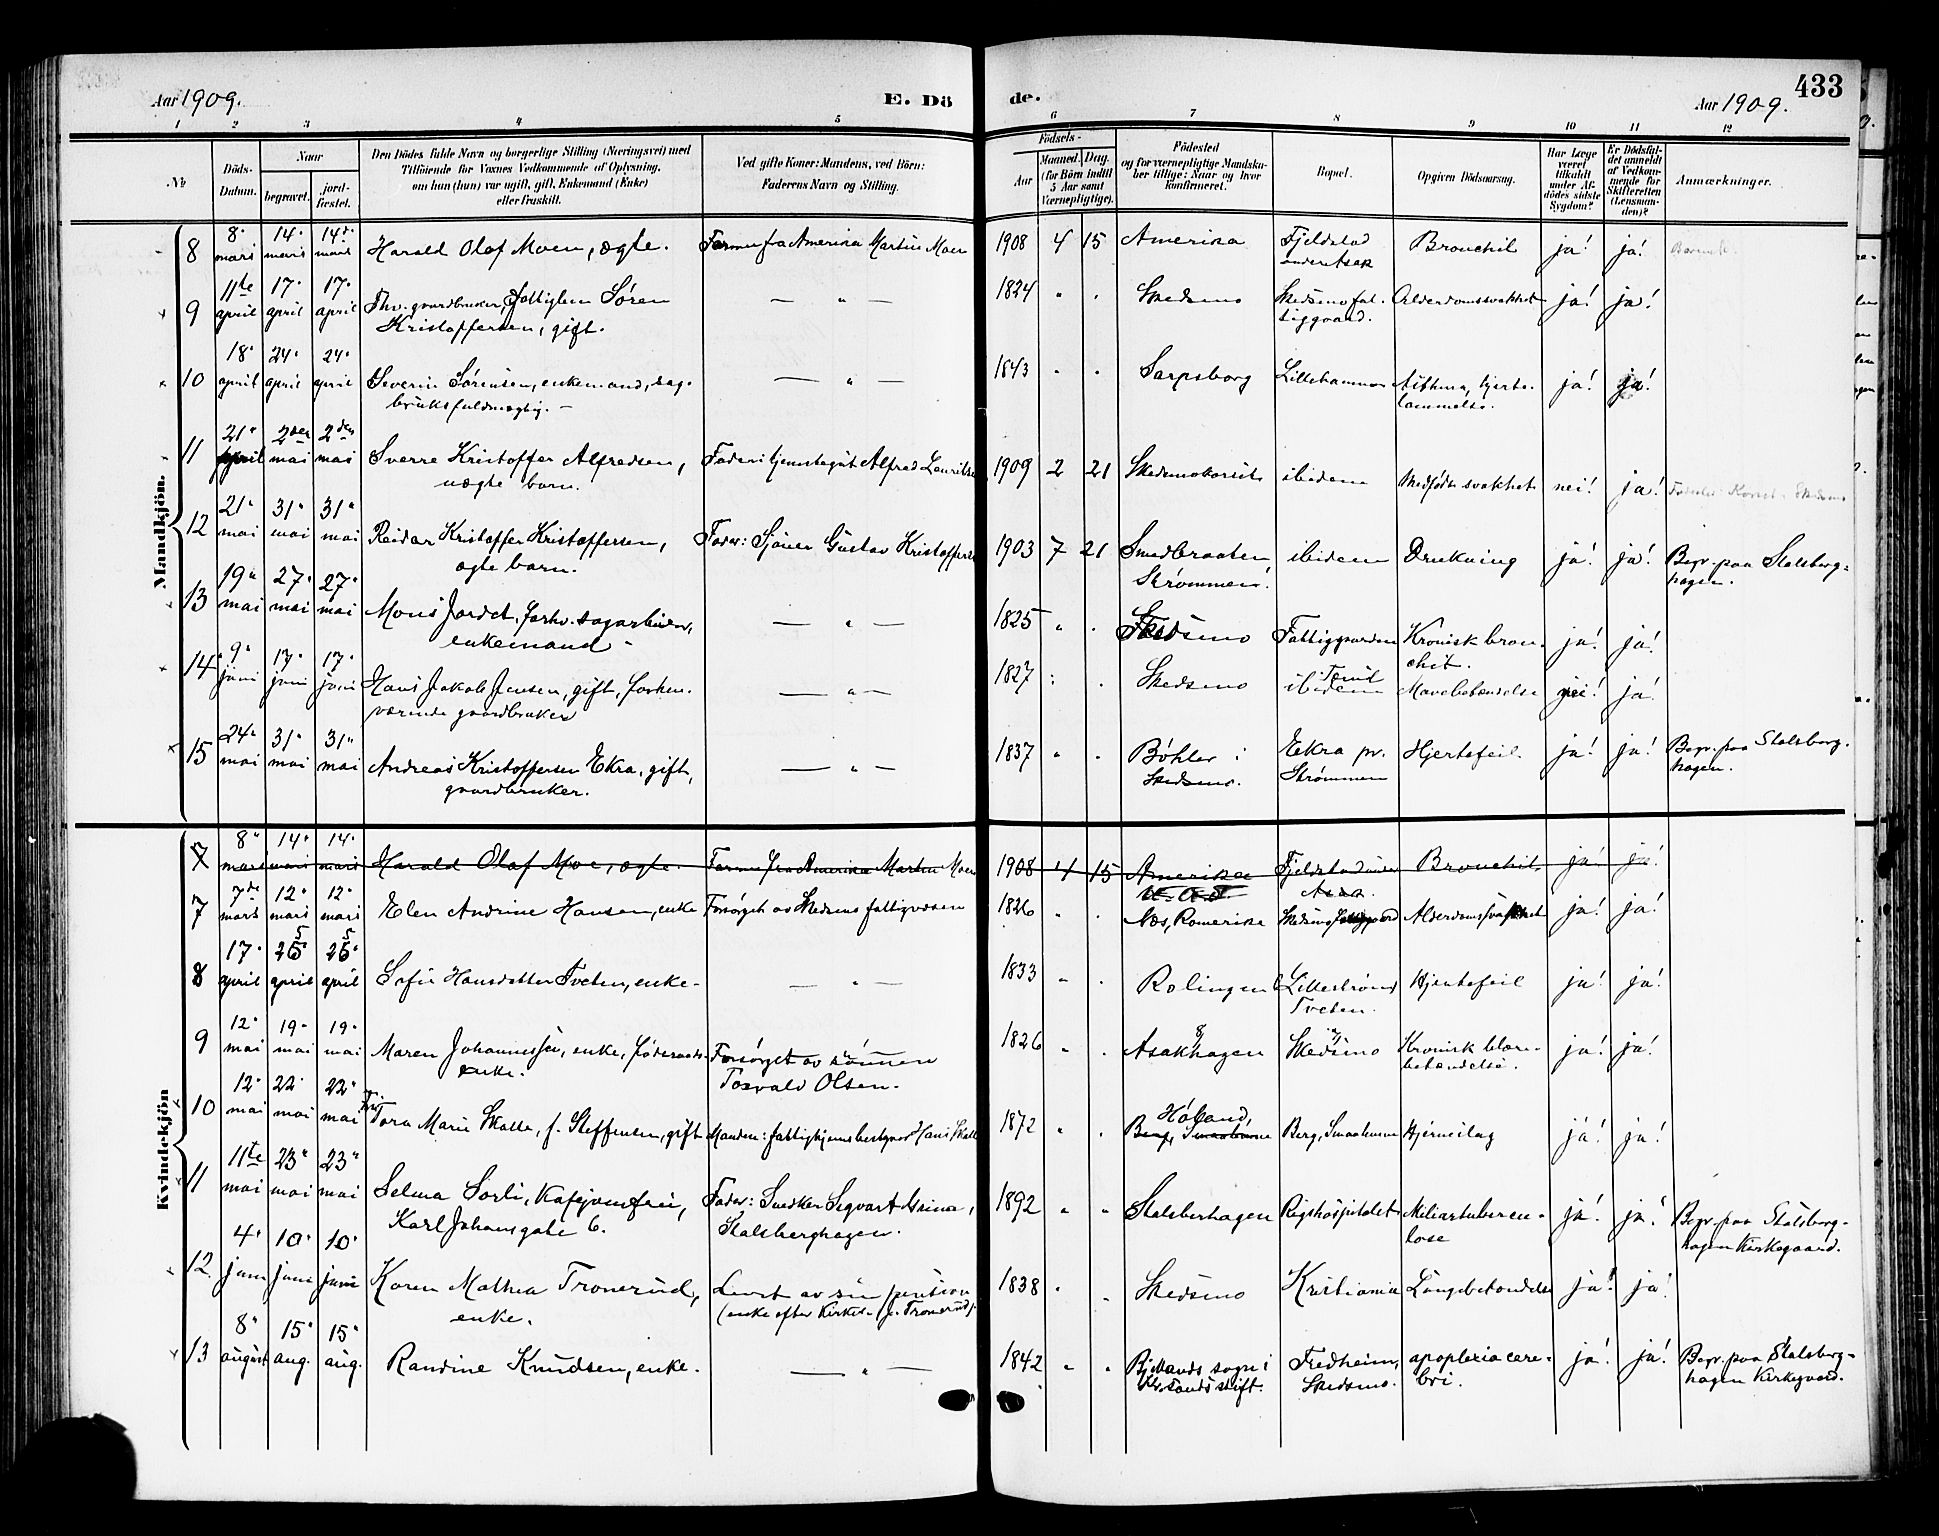 433
Aar 1909.
E. Dö
de.
Aar 1909.
1 2 3 4 5 6 7 8 9 10 11 12
No
Döds-Datum.
Naar
begravet.
jordfæstet.
Den Dödes fulde Navn og borgerlige Stilling (Næringsvei) med
Tilföiende for Voxnes Vedkommende af Oplysning,
om han (hun) var ugift, gift, Enkemand (Enke)
eller fraskilt.
Ved gifte Koner: Mandens, ved Börn:
Faderens Navn og Stilling.
Födsels-
Aar
Maaned. Dag.
(for Börn indtil
5 Aar samt
Værnepligtige).
Födested
og for værnepligtige Mandska-
ber tillige: Naar og hvor
konfirmeret.
Bopæl.
Opgiven Dödsaarsag.
Har Læge
været
tilkaldt
under Af-
dödes sidste
Sygdom?
Er Dödsfal-
det anmeldt
af Vedkom-
mende for
Skifteretten
(Lensman-
den)?
Anmærkninger.
Mandkjön.
8 8. mars 14. mars 14de mars Harald Olaf Moen, ægte. Farmer fra Amerika Martin Moen 1908 4 15 Amerika Fjeldstad under Asak Bronchit ja! ja!
9 11te april 17. april 17. april Fhv. gaardbruker, fattiglem Sören
Kristoffersen, gift. — " — 1824 " . Skedsmo Skedsmo fat-
tiggaard. Alderdomssvakhet ja! ja!
10 18. april 24. april 24. april Severin Sørensen, enkemand, sag-
bruksfuldmægtig. — — " — 1843 " . Sarpsborg Lillehammer Asthma, hjerte-
lammelse. ja! ja!
11 21. april 2den mai 2den mai Sverre Kristoffer Alfredsen,
uægte barn. Fader: tjenestegut Alfred Lauritsen 1909 2 21 Skedsmokorset ibidem Medfødt svakhet nei! ja!
12 21. mai 31. mai 31. mai Reidar Kristoffer Kristoffersen,
ægte barn. Fader: Sjöuer Gustav Kristoffersen 1903 7 21 Smedbraaten,
Strømmen. ibidem Drukning ja! ja! Begr. paa Stalsberg-
hagen.
13 19. mai 27. mai 27. mai Mons Jordet, forhv. sagarbeider,
enkemand — — " — 1825 " . Skedsmo Fattiggaarden Kronisk bron-
chit. ja! ja!
14 9. juni 17. juni 17. juni Hans Jakob Jensen, gift, forhen-
værende gaardbruker — " — 1827 " . Skedsmo ibidem Mavebetændelse nei! ja!
15 24. mai 31. mai 31. mai Andreas Kristoffersen Ekra, gift,
gaardbruker. — " — 1837 " . Bøhler i
Skedsmo. Ekra pr.
Strømmen Hjertefeil ja! ja! Begr. paa Stalsberg-
hagen.
Kvindekjön
7 8. mars 14. mars 14. mars Harald Olaf Moe, ægte. Farmer fra Amerika Martin Moen 1908 4 15 Amerika Fjeldstad under
Asak Bronchit ja! ja!
7 7de mars 12. mars 12. mars Elen Andrine Hansen, enke Forsörget av Skedsmo fattigvæsen 1826 " . Næs, Romerike Skedsmo fattiggaard Alderdomssvakhet ja! ja!
8 17. april 25. april 25. april Sofie Hansdatter Tveten, enke. — " — 1833 " . Rælingen Lillestrøm,
Tveten. Hjertefeil ja! ja!
9 12. mai 19. mai 19. mai Maren Johannessen, enke, føderaads-
enke. Forsörget av sönnen
Torvald Olsen. 1826 " . Asakhagen Skedsmo Kronisk blære-
betændelse. ja! ja!
10 12. mai 22. mai 22. mai Fru Tora Marie Skatte, f. Steffensen, gift Manden: fattighjemsbestyrer Hans Skatte 1872 " . Høland,
Berg, Smaahaune Berg, Smaahaune Hjerneslag ja! ja!
11 11te mai 23. mai 23. mai Selma Sorli, kafejomfru,
Karl Johansgate 6. Fader: Snedker Sigvart Asina,
Stalsberghagen. 1892 " " Stalsberhagen Rigshospitalet Miliærtuberku-
lose ja! ja! Begr. paa Stalsberg-
hagen Kirkegaard.
12. 4. juni 10. juni 10. juni Karen Mathea Tronerud,
enke. Levet av sin pension
(enke efter Kirkes. J. Tronerud). 1838 " . Skedsmo Kristiania Lungebetændelse ja! ja!
13 8. august 15. aug. 15. aug. Randine Knudsen, enke. — " — 1842 " " Bjellands sogn i
Kr.sands stift. Fredheim,
Skedsmo. apoplexia cere-
bri. ja! ja! Begr. paa Stalsberg-
hagen Kirkegaard.